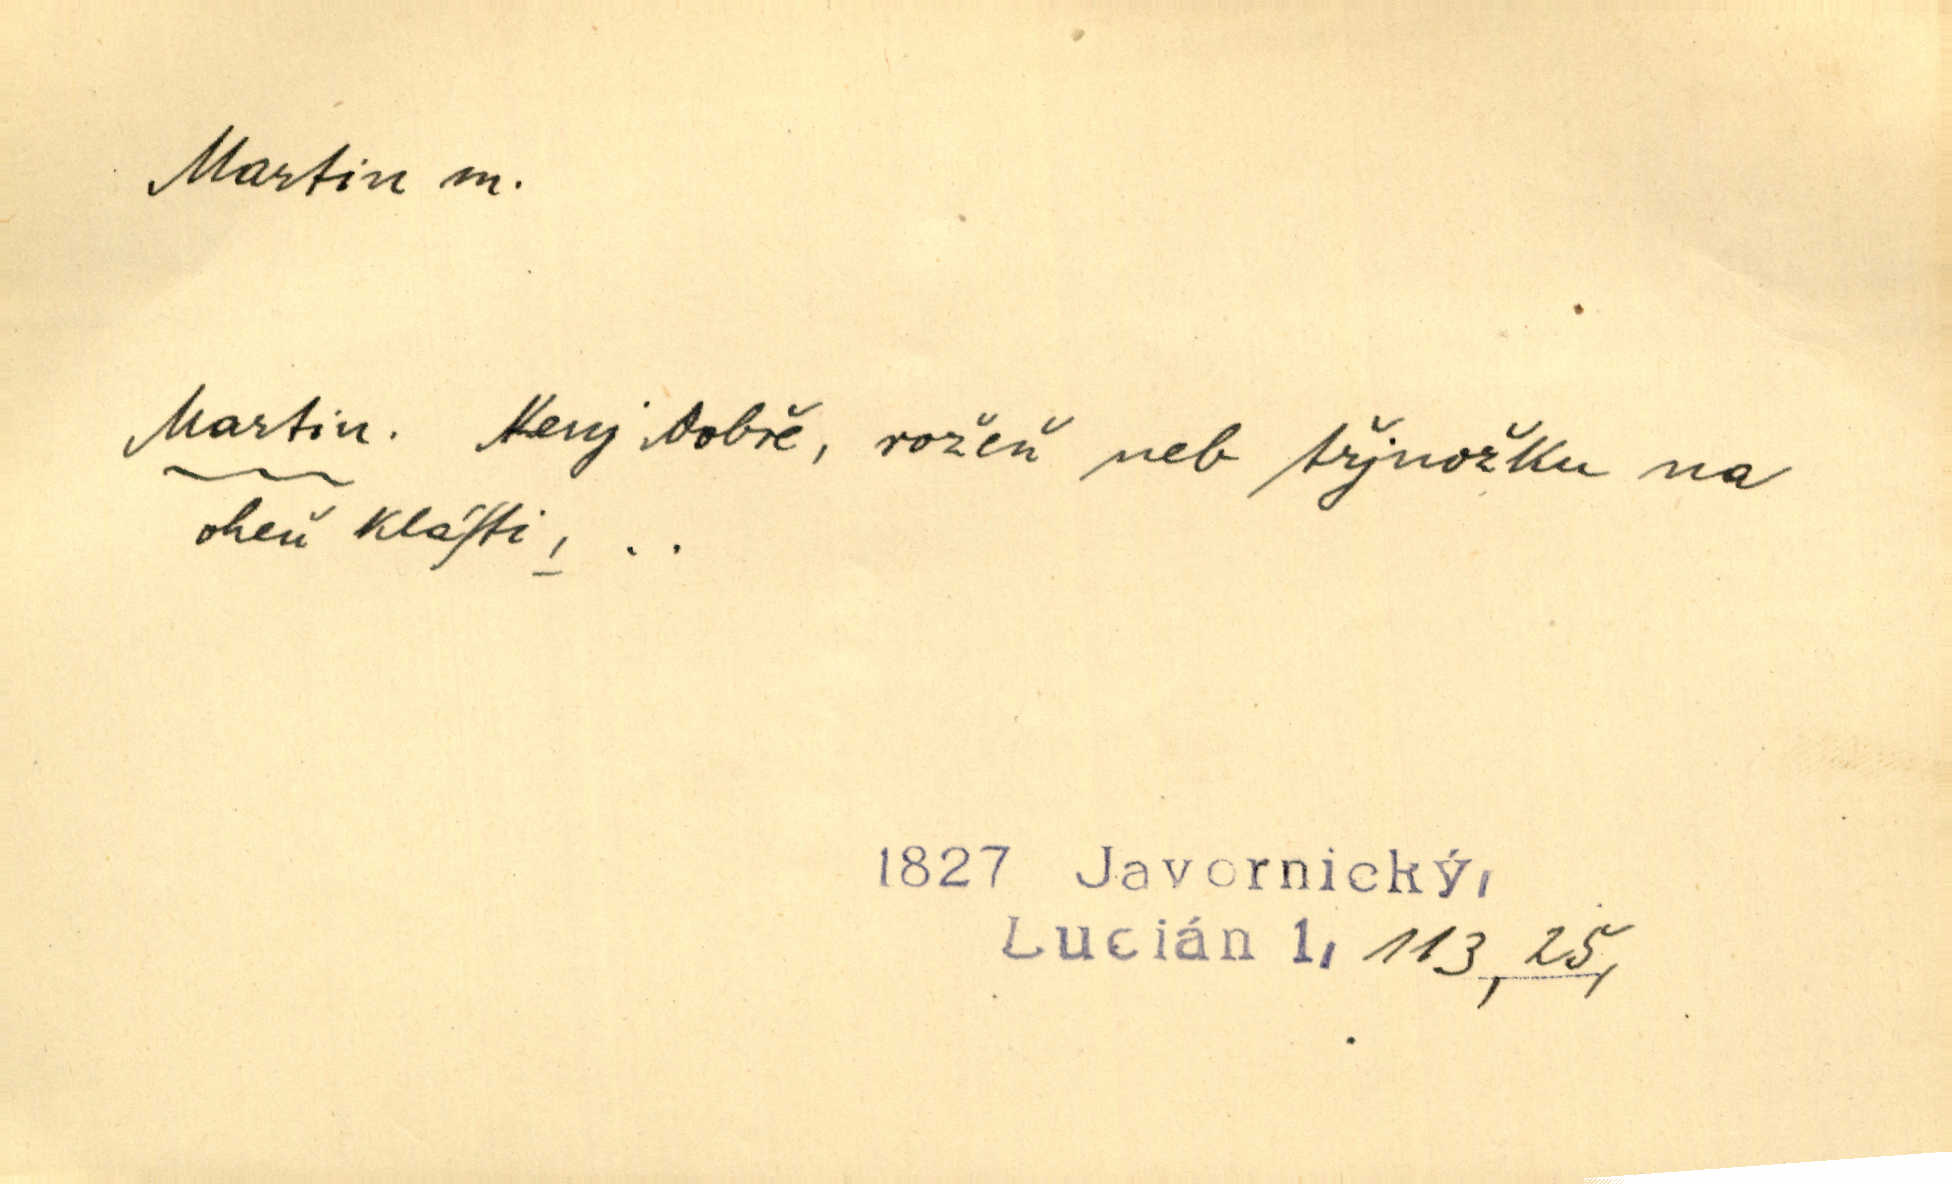 Martin m.
Martin. Nenj dobře, rožeň neb třjnožku na
oheň kláſti, ..
1827 Javornický,
Lucián 1, 113, 25,